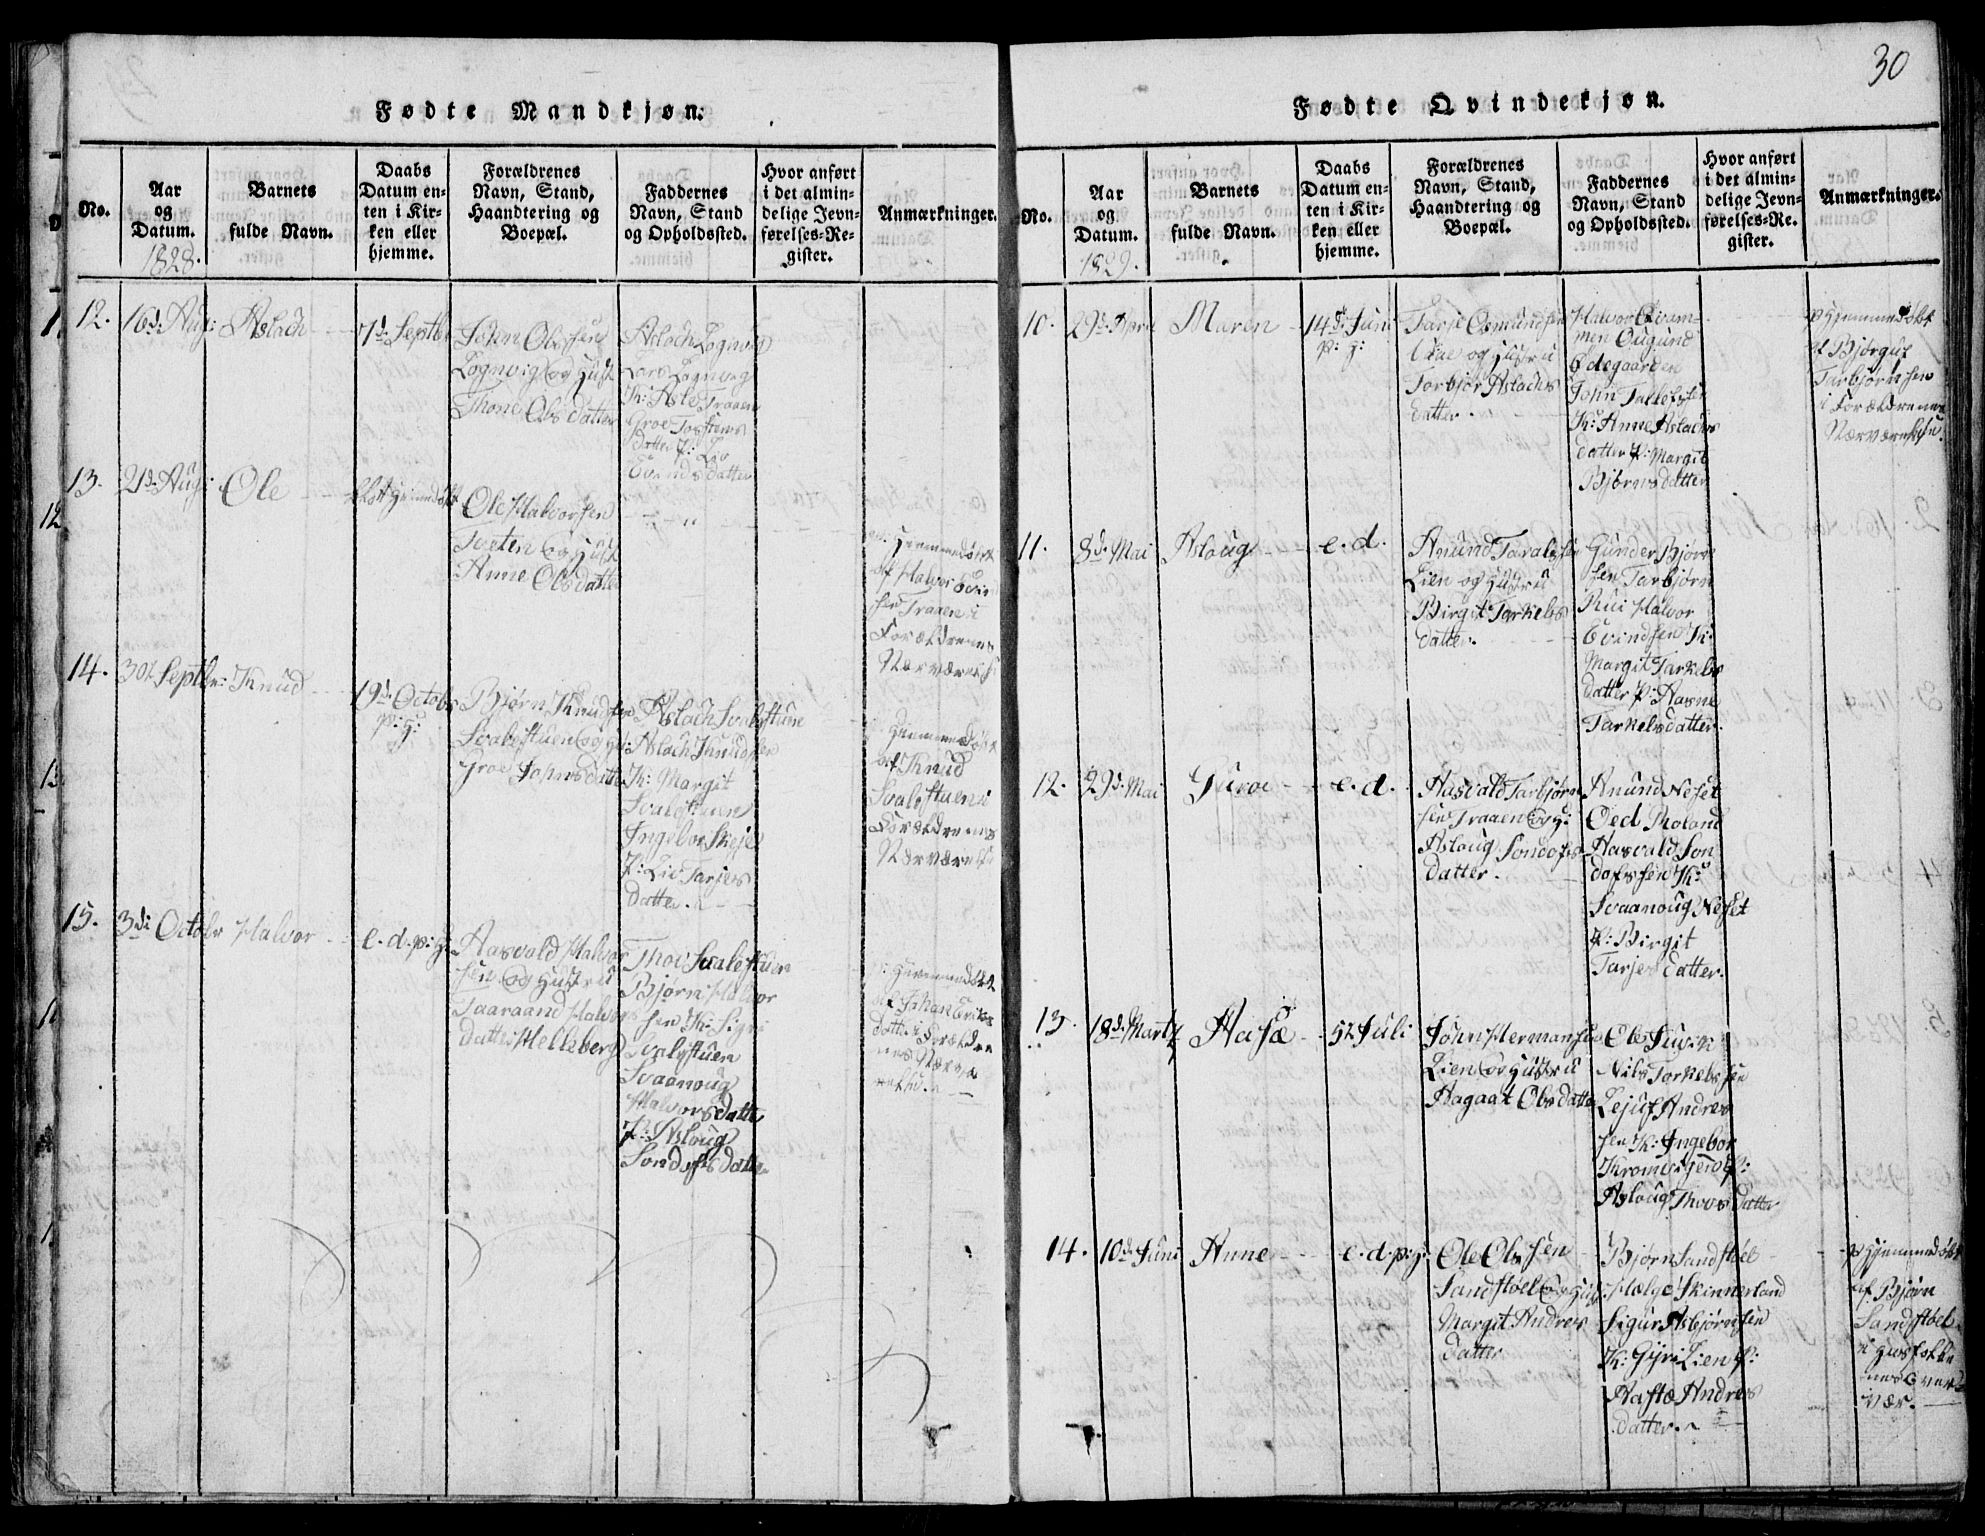 Fødte Mandkjøn.
No.
Aar
og
Datum.
1828.
Barnets
fulde Navn.
Daabs
Datum en-
ten i Kir-
ken eller
hjemme.
Forældrenes
Navn, Stand,
Haandtering og
Boepæl.
Faddernes
Navn, Stand
og Opholdssted.
Hvor anført
i det almin-
delige Jevn-
førelses-Re-
gister.
Anmærkninger.
12.
16d. Aug:
Aslach
7d. Septbr
John Olssen
Lognvig og Hust
Thone Olsdatter
Aslach Lognvig
Lars Lognvig
K: Aste Traaen
Groe Tostens
datter P: Liv
Evindsdatter
13.
21d. Aug:
Ole
Ole Halvorsen
Tveten og Hust
Anne Olsdatter
Hjemmedøbt
af Halvor Evin
sen Traaen i
Forældrenes
Nærværelse
14.
30t Septbr:
Knud
19d. Octobr
p: H:
Bjørn Knudsen
Svalestuen og H:
Groe Johnsdatter
Aslach Svalestuen
Aslach Knudsen
K: Margit
Svalestuen
Ingebor Skeje
P: Liv Tarjes
datter.
Hjemmedøbt
af Knud
Svalestuen i
Forældrenes
Nærværelse
15.
3di Octobr
Halvor
e. d. p: H:
Aasvald Halvor
sen og Hustru
Taaraand Halvors
datter Helleberg
Thov Svalestuen
Bjørn Halvor
sen K: Sigri
Svalestuen
Svaanoug
Halvorsdatter
P: Asloug
Sondofsdatter
Hjemmedøbt
datter i Forældre
nes Nærvæ
relse.
30
Fødte Qvindekjøn.
No.
Aar
og
Datum.
1829.
Barnets
fulde Navn.
Daabs
Datum en-
ten i Kir-
ken eller
hjemme.
Forældrenes
Navn, Stand,
Haandtering og
Boepæl.
Faddernes
Navn, Stand
og Opholdssted.
Hvor anført
i det almin-
delige Jevn-
førelses-Re-
gister.
Anmærkninger.
10.
29d. April
Maren
14d. Juni
p: H:
Tarje Osmundsen
og Hustru
Torbjør Aslachs
datter.
Halvor
Ougund
Ødegaarden
John Tallefssen
K: Anne Aslachs
datter P: Margit
Bjørnsdatter
Hjemmedøbt
af Bjørguf
Tarbjørnsen
i Forældrenes
Nærværelse.
11.
8d. Mai
Asloug
e. d.
Anund Taralssen
Lien og Hustru
Birgit Tarkels
datter.
Gunder Bjørn
sen Tarbjørn
Rui Halvor
Evindsen K:
Margit Tarkels
datter P: Aasne
Tarkelsdatter.
12.
29d. Mai
Guroe
e. d.
Aasvald Tarbjørn
sen Traaen og H:
Asloug Sondofs
datter.
Anund Neset
Oed Roland
Aasvald Son
dofssen K:
Svaanoug Neset
P: Birgit
Tarjesdatter.
13.
18d. Martz
Aasæ
5t Juli
John Hermansen
Lien og Hustru
Aagaat Olsdatter
Ole Juvin
Nils Tarkelssen
Lejuf Andres
sen K: Ingebor
Kromvigen P:
Asloug Thovsdatter
14.
10d. Juni
Anne
e. d. p: H:
Ole Olssen
Sandstøel og Hust
Margit Andres
datter
Bjørn Sandstøel
Hælge Skinnerland
Sigur Asbjørnsen
K: Gyri Lien P:
Aaste Andres
datter.
Hjemmedøbt
af Bjørn
Sandstøel
i Husfolke
nes Over
vær.